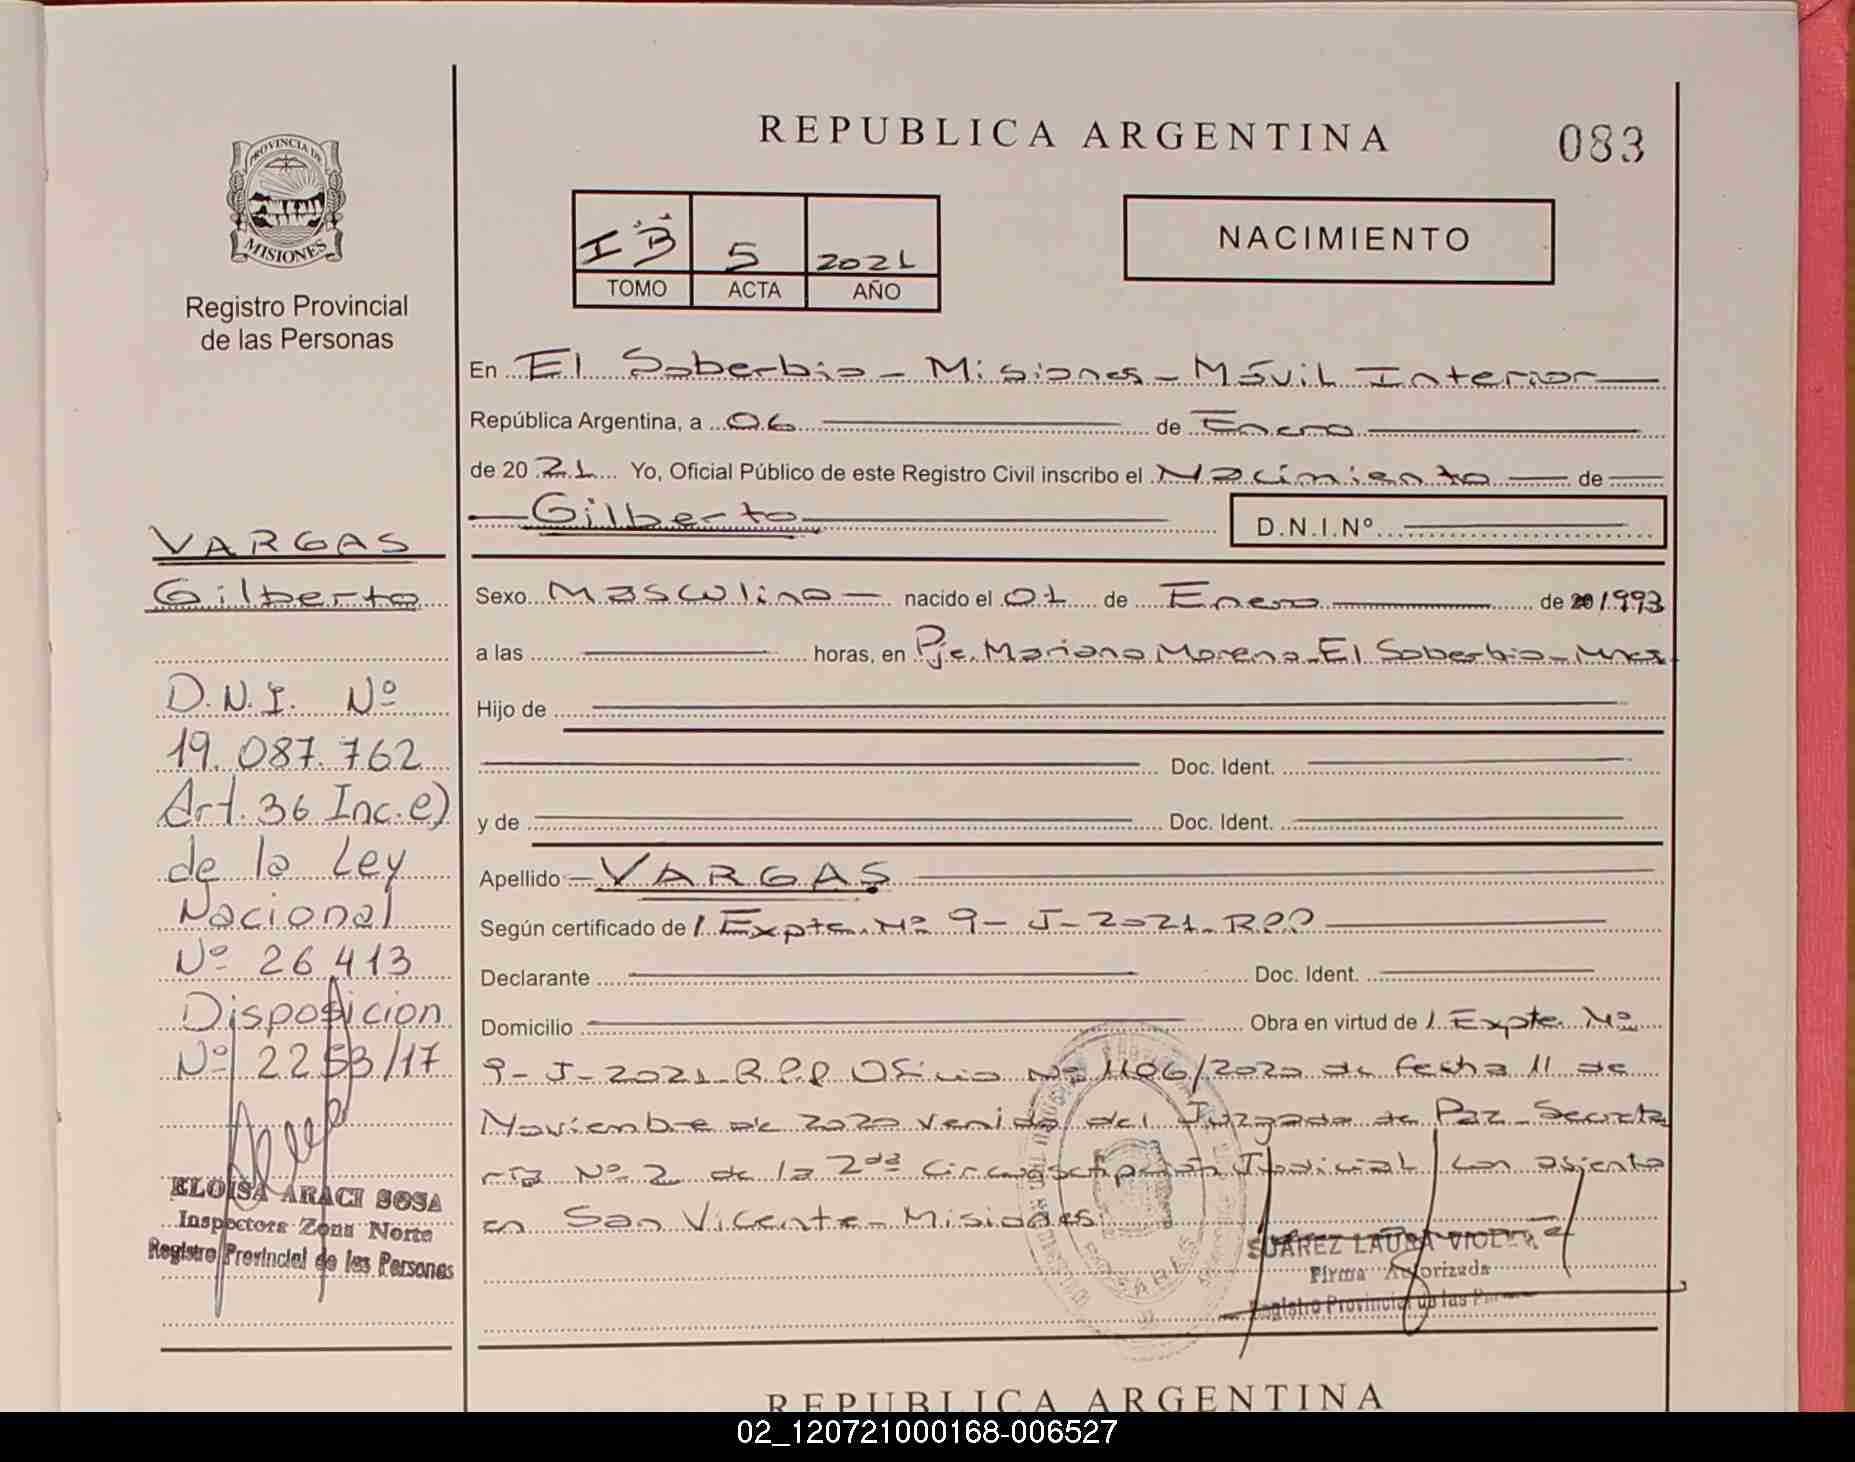 REPUBLICA ARGENTINA
083
PROVINCIA DE
MISIONES
Registro Provincial
de las Personas
I "B" 5 2021
TOMO ACTA AÑO
NACIMIENTO
En El Soberbio - Misiones - Móvil Interior
República Argentina, a 06 de Enero
de 2021 Yo, Oficial Público de este Registro Civil inscribo el Nacimiento de
Gilberto
D.N.I.Nº
Sexo Masculino nacido el 01 de Enero de 20 1993
a las horas, en Pje. Mariano Moreno - El Soberbio - Mnes
Hijo de
Doc. Ident.
y de Doc. Ident.
Apellido VARGAS
Según certificado de / Expte. Nº 9 - J - 2021 - RPP
Declarante Doc. Ident.
Domicilio Obra en virtud de / Expte. Nº
9 - J - 2021 - RPP Oficio Nº 1106/2020 de fecha 11 de
Noviembre de 2020 venido del Juzgado de Paz - Secreta
ria Nº 2 de la 2da Circunscripción Judicial con asiento
en San Vicente - Misiones.
SUAREZ LAURA VIOLETA
Firma Autorizada
Registro Provincial de las
VARGAS
Gilberto
D.N.I. Nº
19.087.762
Art. 36 Inc. e)
de la Ley
Nacional
Nº 26.413
Disposicion
Nº 2253/17
ELOISA ARACI SOSA
Inspectora Zona Norte
Registro Provincial de las Personas
REPUBLICA ARGENTINA
02_120721000168-006527